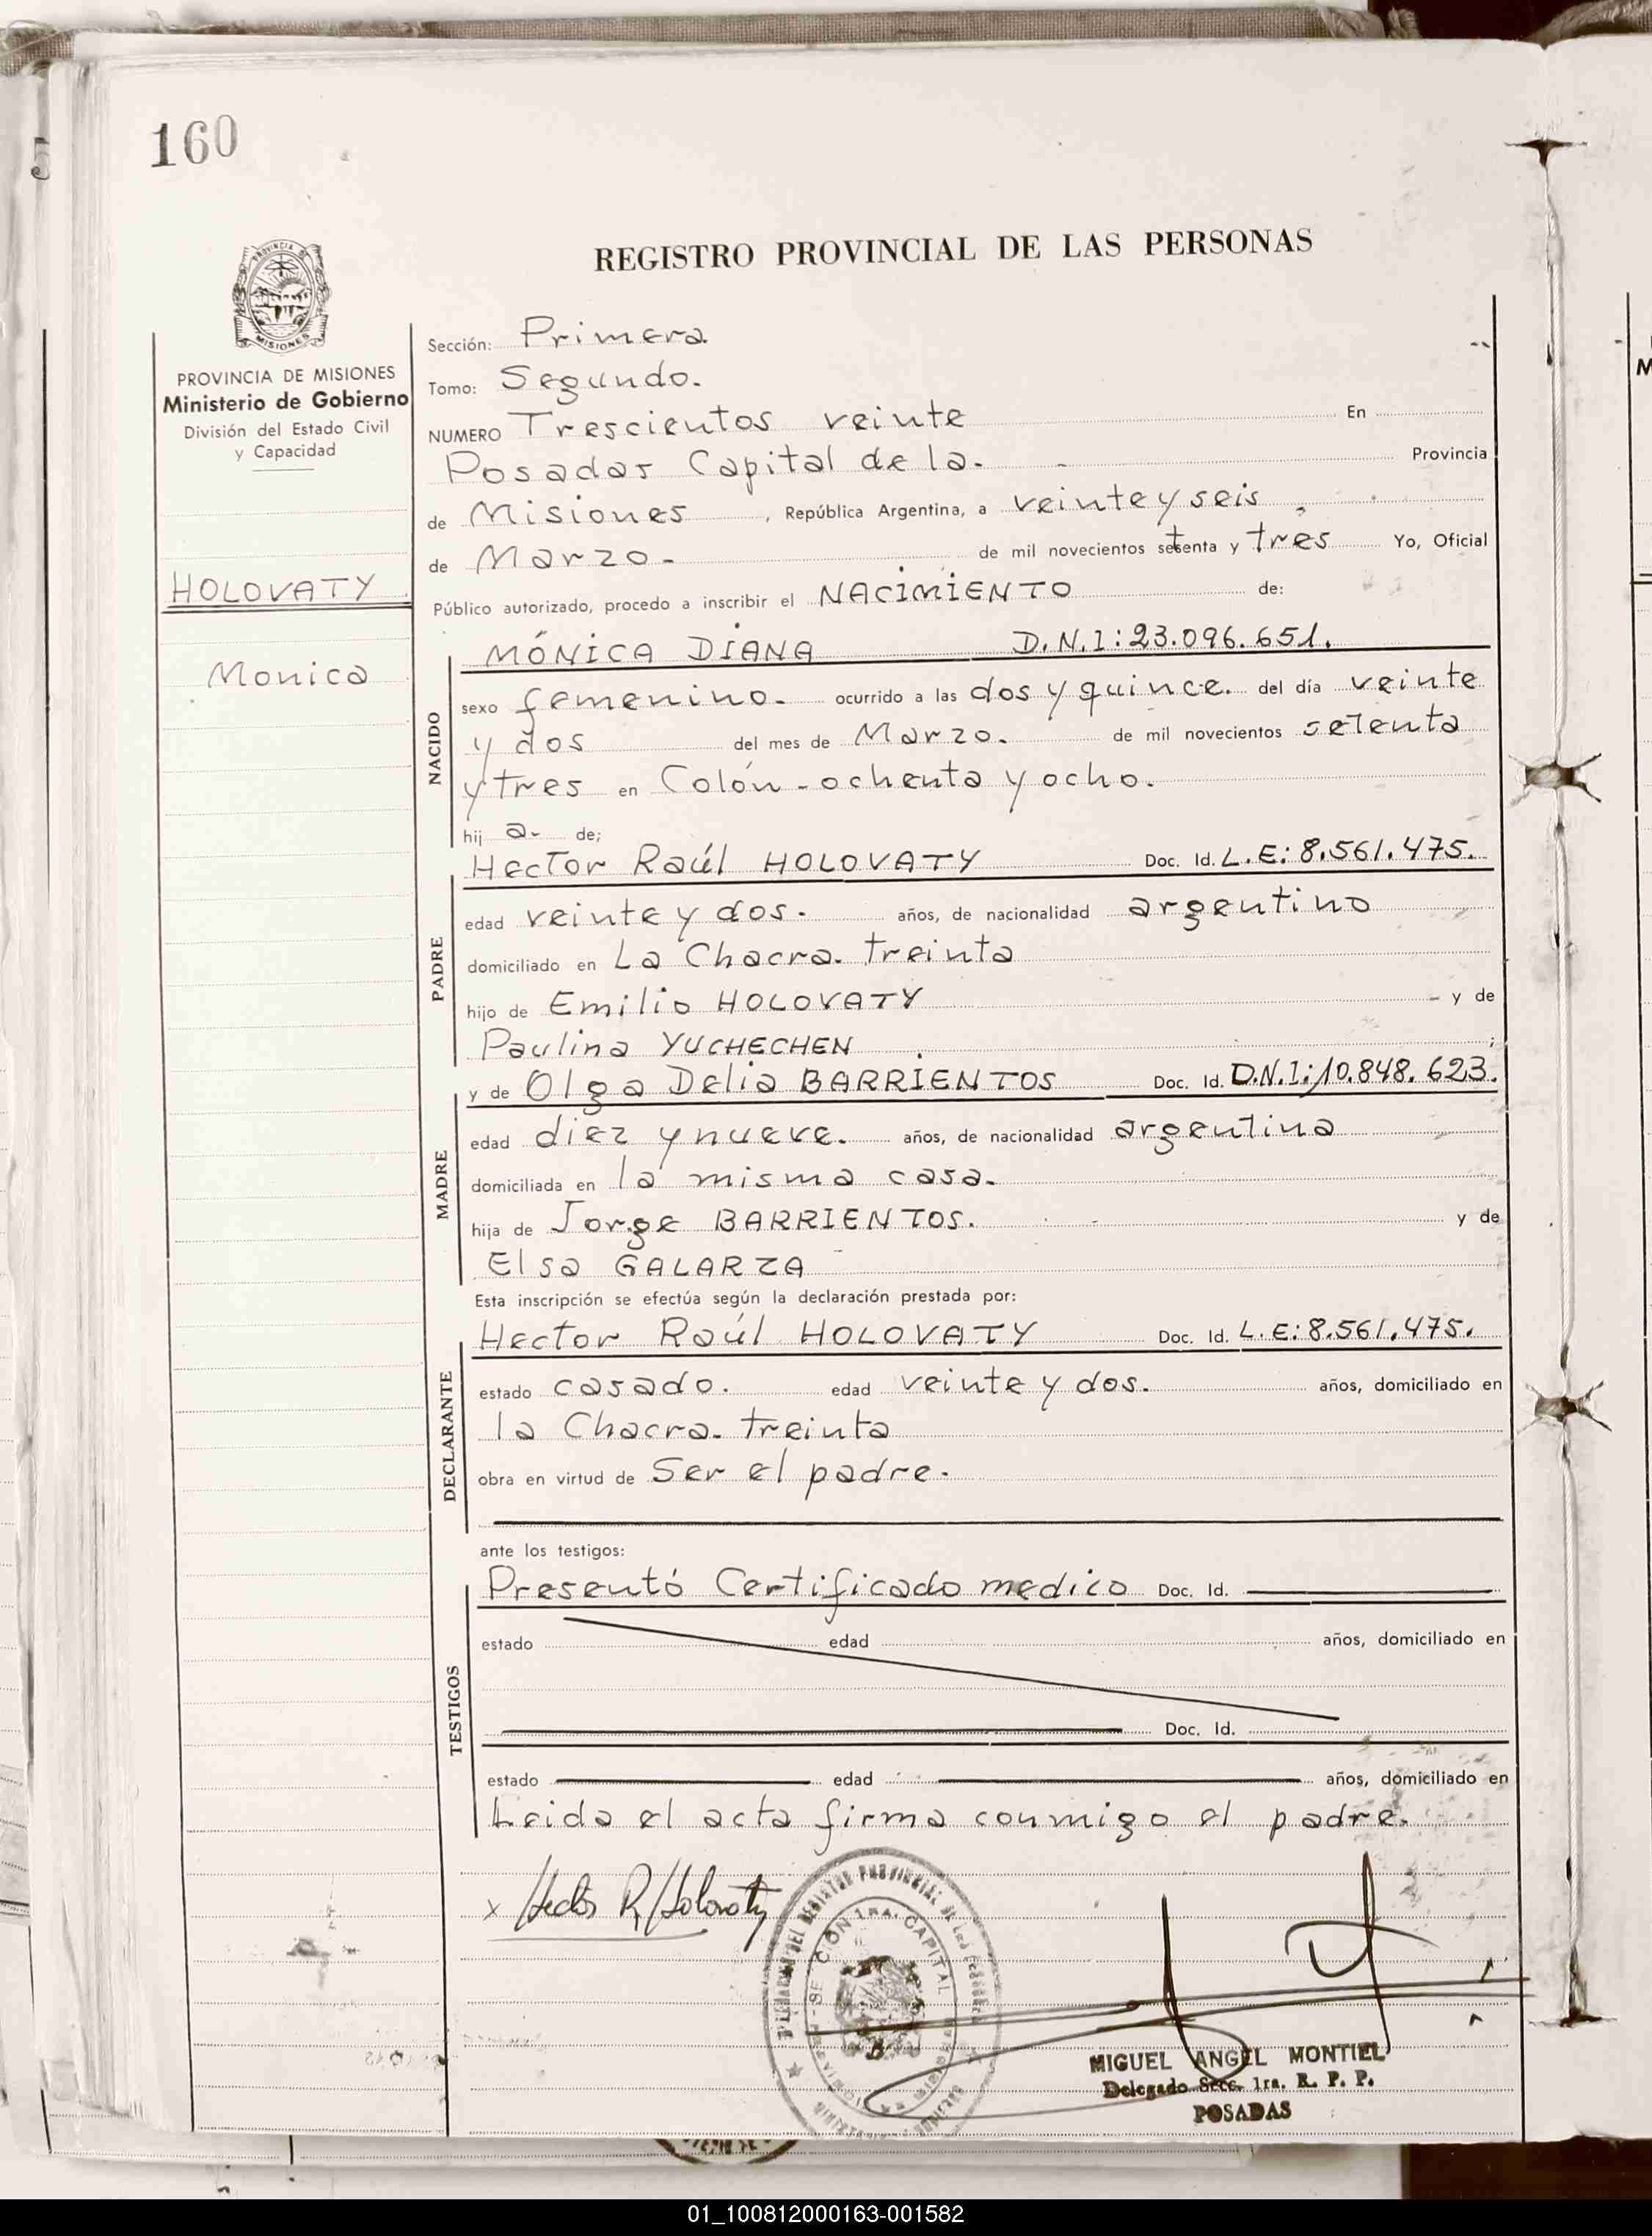 160
REGISTRO PROVINCIAL DE LAS PERSONAS
PROVINCIA DE
MISIONES
PROVINCIA DE MISIONES
Ministerio de Gobierno
División del Estado Civil
y Capacidad
HOLOVATY
Monica
Sección: Primera
Tomo: Segundo.
NUMERO Trescientos veinte En
Posadas Capital de la. Provincia
de Misiones, República Argentina, a veinte y seis
de Marzo. de mil novecientos setenta y tres Yo, Oficial
Público autorizado, procedo a inscribir el NACIMIENTO de:
NACIDO
MÓNICA DIANA D.N.I: 23.096.651.
sexo femenino. ocurrido a las dos y quince. del día veinte
y dos del mes de Marzo. de mil novecientos setenta
y tres en Colón - ochenta y ocho.
hij a. de;
PADRE
Hector Raúl HOLOVATY Doc. Id. L.E: 8.561.475.
edad veinte y dos. años, de nacionalidad argentino
domiciliado en La Chacra. treinta
hijo de Emilio HOLOVATY y de
Paulina YUCHECHEN ;
MADRE
y de Olga Delia BARRIENTOS Doc. Id. D.N.I: 10.848.623.
edad diez y nueve. años, de nacionalidad argentina
domiciliada en la misma casa.
hija de Jorge BARRIENTOS. y de
Elsa GALARZA
Esta inscripción se efectúa según la declaración prestada por:
DECLARANTE
Hector Raúl HOLOVATY Doc. Id. L.E: 8.561.475.
estado casado. edad veinte y dos. años, domiciliado en
la Chacra. treinta
obra en virtud de Ser el padre.
ante los testigos:
TESTIGOS
Presentó Certificado medico Doc. Id.
estado edad años, domiciliado en
Doc. Id.
estado edad años, domiciliado en
Leida el acta firma conmigo el padre.
x Hector R. Holovaty
SECCION 1RA. CAPITAL
MIGUEL ANGEL MONTIEL
Delegado Secc. 1ra. R. P. P.
POSADAS
01_100812000163-001582